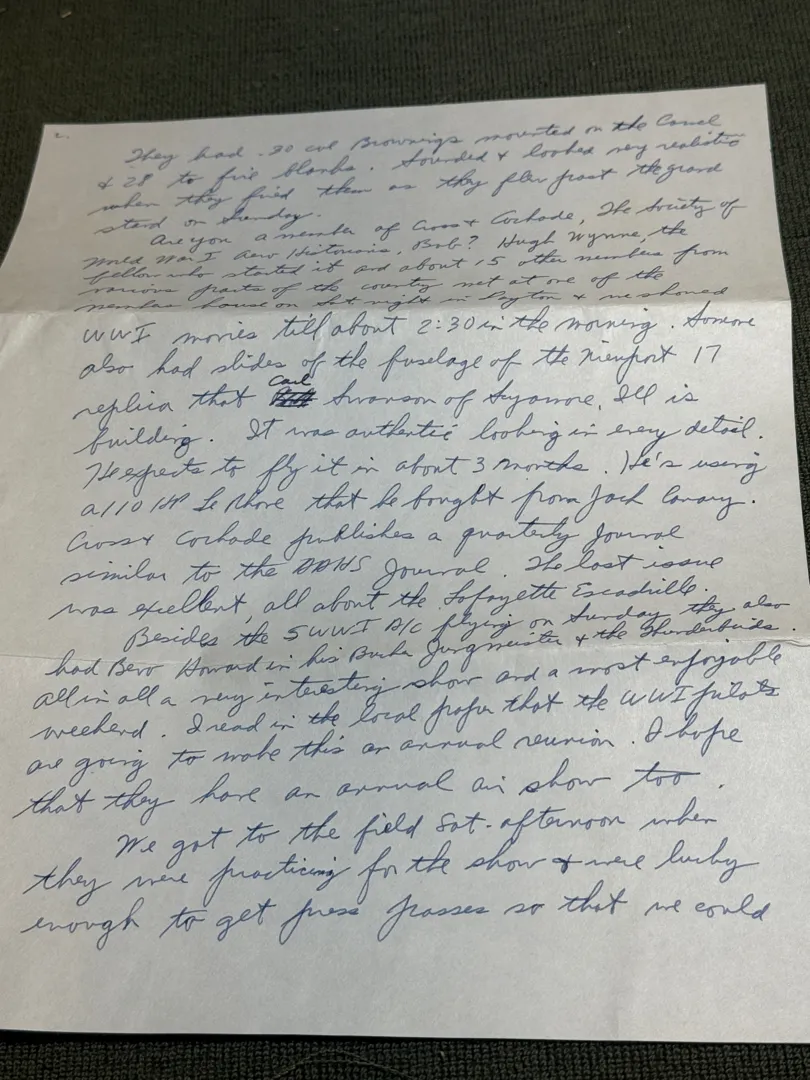 2.
They had .30 cal Brownings mounted on the Camel
& 28 to fire blanks. Sounded & looked very realistic
when they fired them as they flew past the grand
stand on Sunday.
Are you a member of Cross & Cockade, The Society of
World War I Aero Historians, Bob? Hugh Wynne, the
fellow who started it and about 15 other members from
various parts of the country met at one of the
members house on Sat night in Dayton & we showed
WWI movies till about 2:30 in the morning. Someone
also had slides of the fuselage of the Nieuport 17
replica that Carl Swanson of Sycamore, Ill is
building. It was authentic looking in every detail.
He expects to fly it in about 3 months. He's using
a 110 HP Le Rhone that he bought from Jack Canary.
Cross & Cockade publishes a quarterly Journal
similar to the AAHS Journal. The last issue
was excellent, all about the Lafayette Escadrille.
Besides the 5 WWI A/C flying on Sunday they also
had Bevo Howard in his Bucker Jungmeister & the Thunderbirds.
All in all a very interesting show and a most enjoyable
weekend. I read in the local paper that the WWI pilots
are going to make this an annual reunion. I hope
that they have an annual air show too.
We got to the field Sat. afternoon when
they were practicing for the show & were lucky
enough to get press passes so that we could